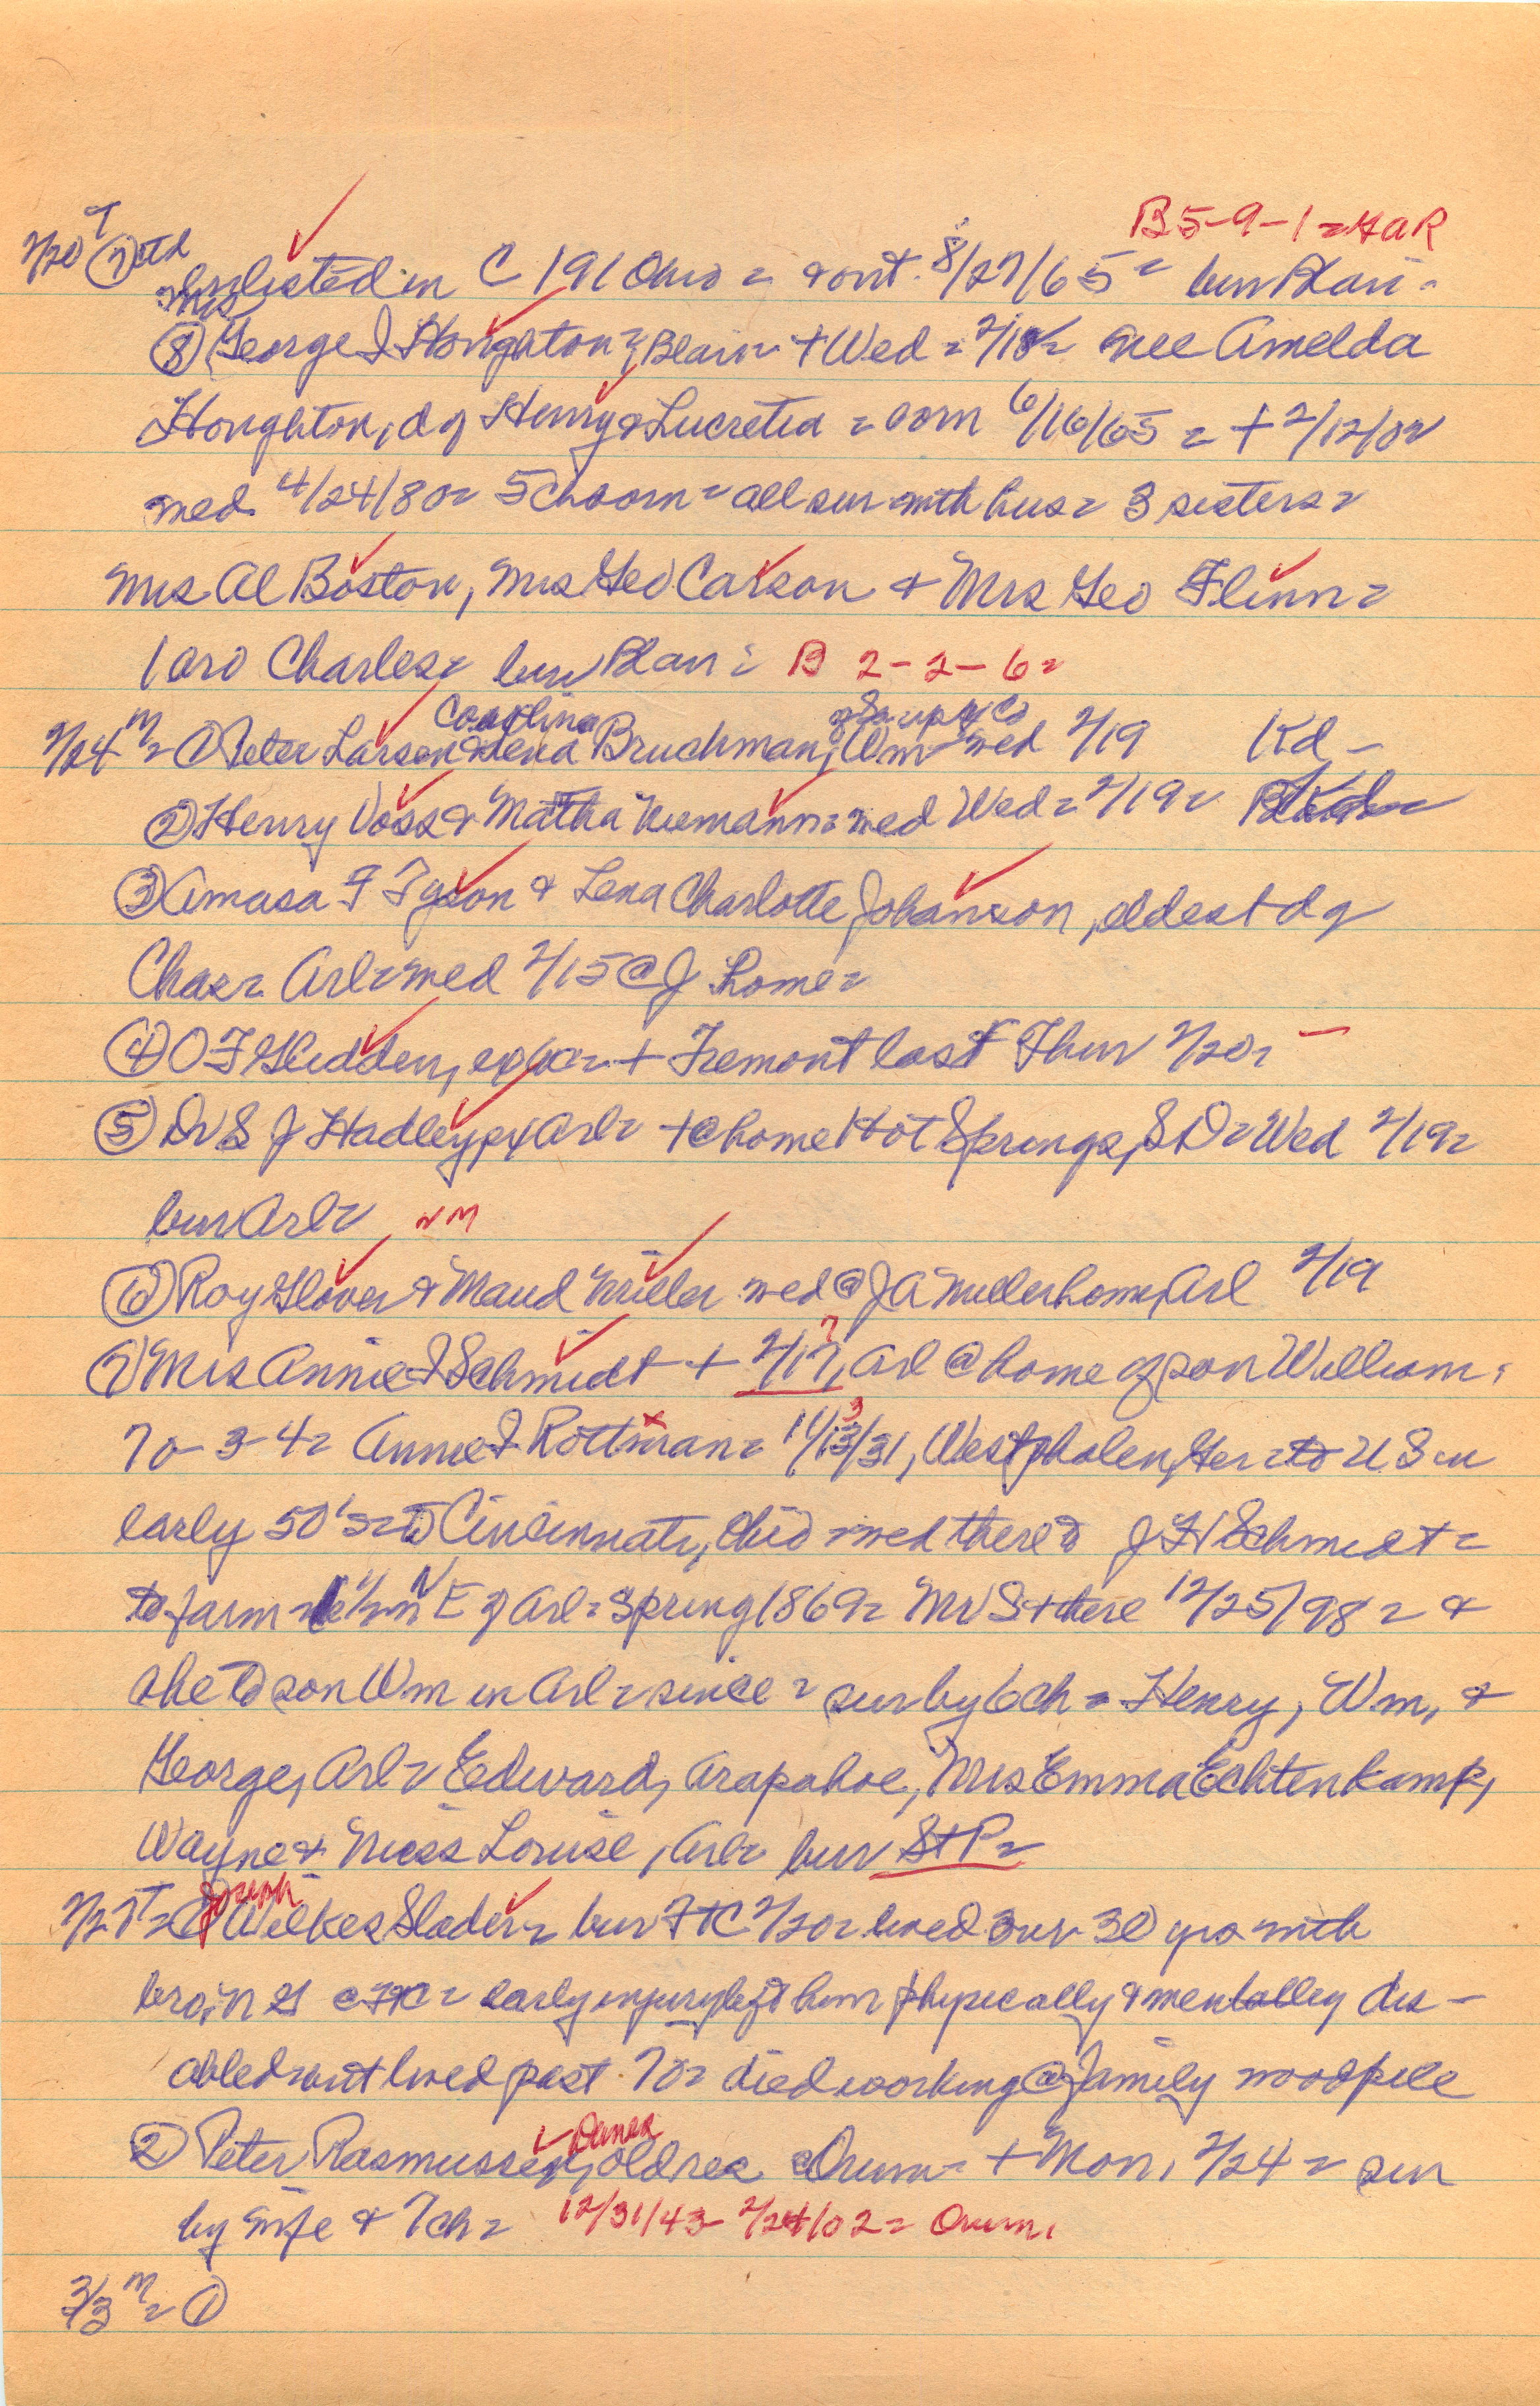 B 5-9-1 = GAR
2/20 T (7) ctd
enlisted in C 191 Ohio = & out 8/27/65 = bur Blair =
Mrs
(8) George J Houghton = Blair = + Wed = 2/12 = nee Amelda
Houghton, dg Henry & Lucretia = born 6/16/65 = + 2/12/02
med 4/24/80 = 5 ch born = all sur with hus = 3 sisters =
Mrs Al Boston, Mrs Geo Carson & Mrs Geo Flinn =
1 bro Charles = bur Blair = B 2-2-6 =
Caroline
2/24 M = (1) Peter Larsen & Lena Bruchman, Wm = med 2/19 Kd -
(2) Henry Voss & Matha Niemann = med Wed = 2/19 =
(3) Amasa F Tyson & Lena Charlotte Johanson, eldest dg
Chas = Arl = med 2/15 @ J home =
(4) O F Glidden, ex = + Fremont last Thur 2/20 = -
(5) Dr S J Hadley, ex Arl = + @ home Hot Springs, S D = Wed 2/19 =
bur Arl =
(6) Roy Glover & Maud Miller med @ J A Miller home, Arl 2/19
(7) Mrs Annie J Schmidt + 2/17, Arl @ home of son William =
70-3-4 = Annie J Rottman = 11/13/31, Westphalen, Ger = to U S in
early 50's = to Cincinnati, Ohio = med there to J H Schmidt =
to farm N E of Arl = spring 1869 = Mr S + there 12/25/98 = &
she to son Wm in Arl = since = sur by 6 ch = Henry, Wm, &
George, Arl = Edward, Arapahoe, Mrs Emma Echtenkamp,
Wayne & Miss Louise, Arl = bur St P =
Joseph
2/27 T = (1) Wilkes Slader = bur Ft C 2/20 = lived over 30 yrs with
bro in G @ Ft C = early injury left him physically & mentally dis-
abled = but lived past 70 = died working @ family woodpile
Danea
(2) Peter Rasmussen, old res @ Orum = + Mon, 2/24 = sur
by wife & 7 ch = 12/31/43 - 2/24/02 = Orum,
3/3 M = (1)